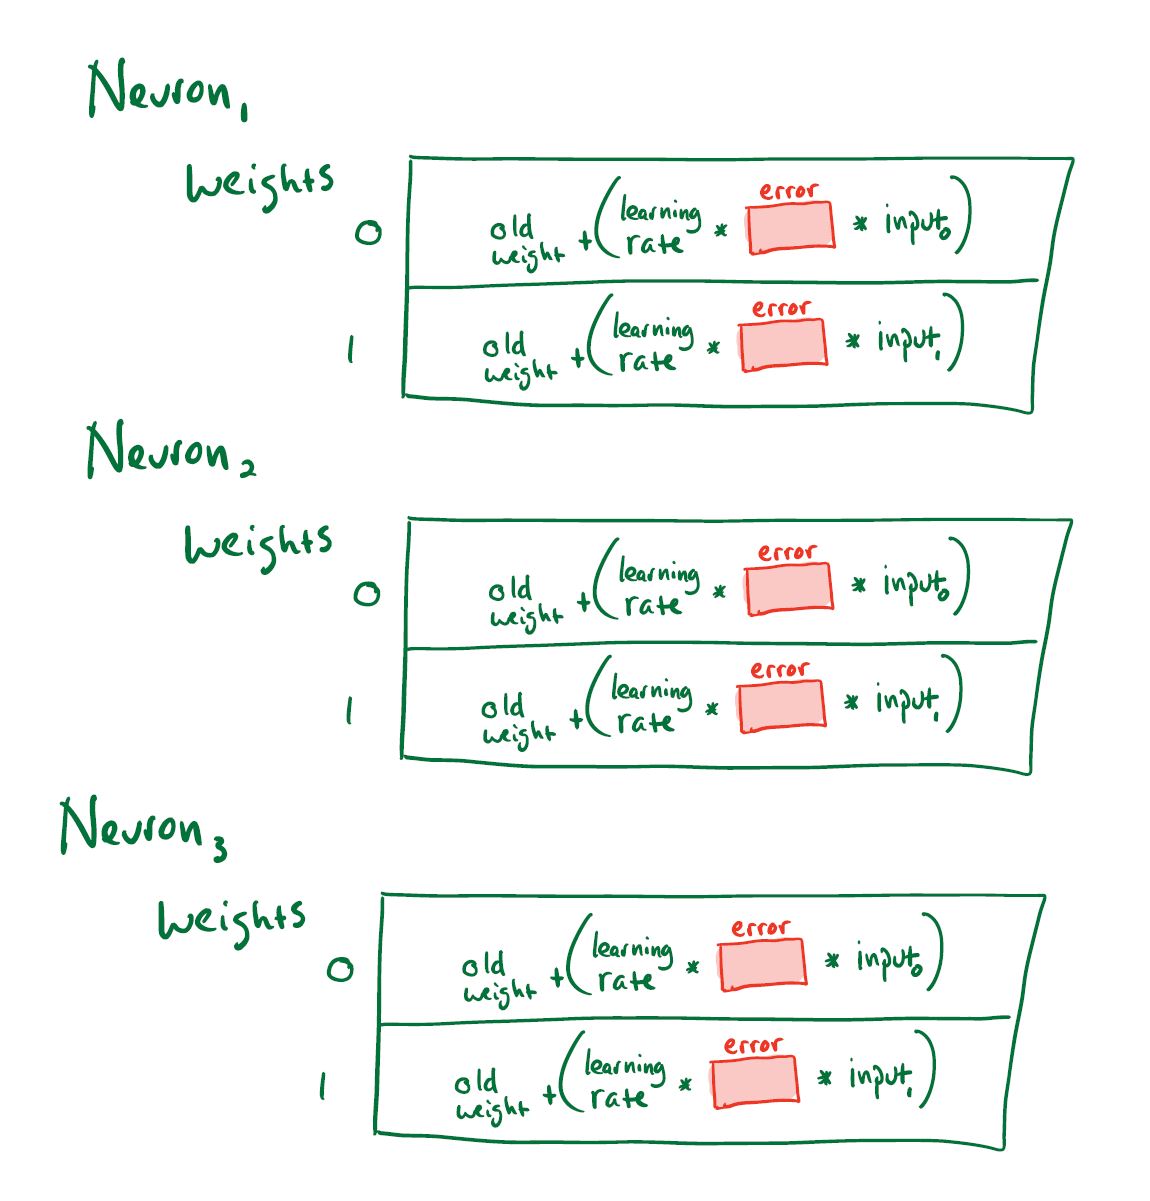 Neuron₁
weights
0 old weight + (learning rate * error * input₀)
1 old weight + (learning rate * error * input₁)
Neuron₂
weights
0 old weight + (learning rate * error * input₀)
1 old weight + (learning rate * error * input₁)
Neuron₃
weights
0 old weight + (learning rate * error * input₀)
1 old weight + (learning rate * error * input₁)